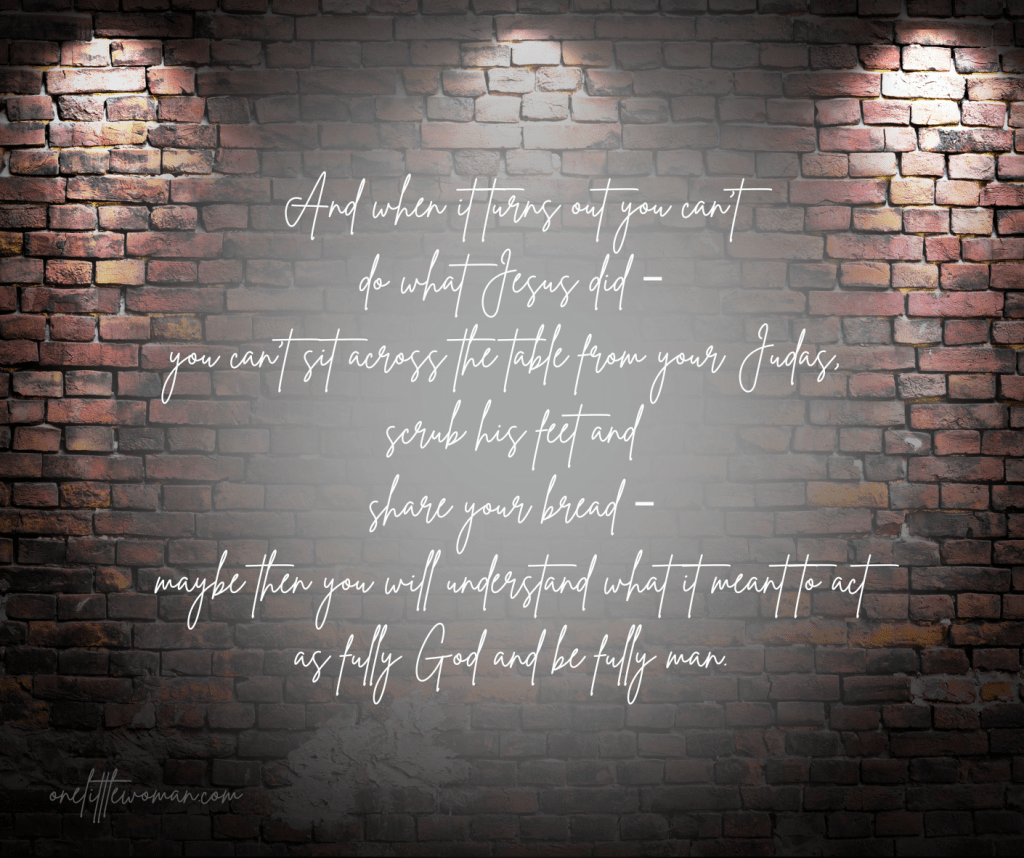 And when it turns out you can't
do what Jesus did –
you can't sit across the table from your Judas,
scrub his feet and
share your bread –
maybe then you will understand what it meant to act
as fully God and be fully man.
onelittlewoman.com